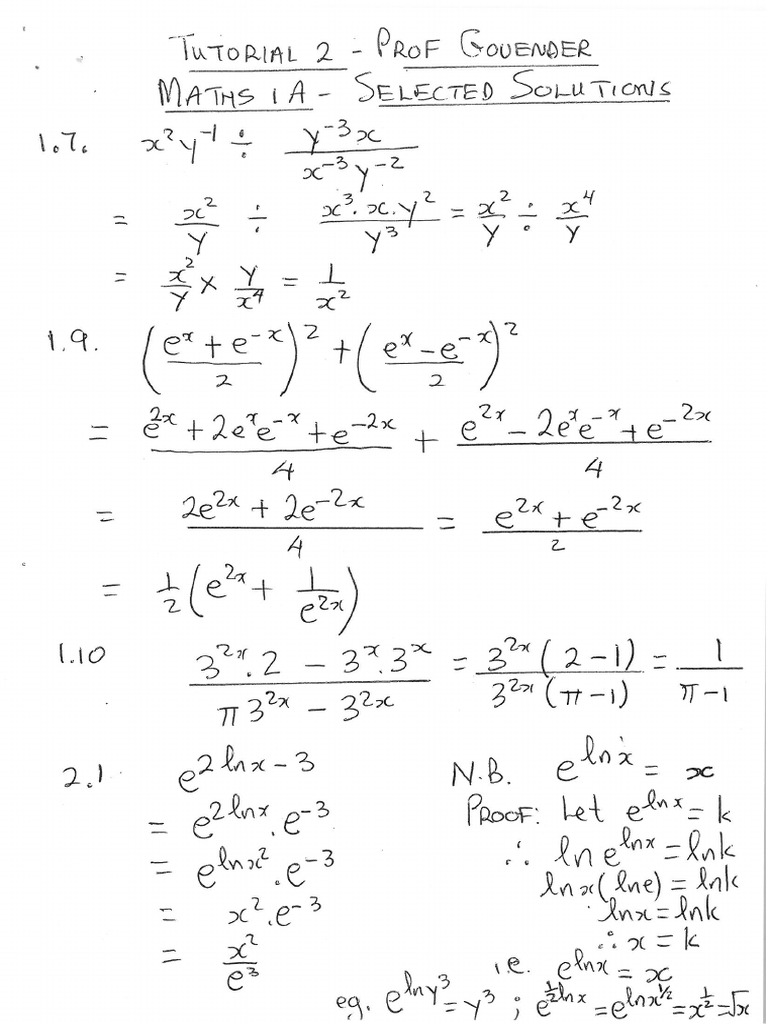 TUTORIAL 2 - PROF GOVENDER
MATHS 1A - SELECTED SOLUTIONS
1.7. x²y⁻¹ ÷ (y⁻³x)/(x⁻³y⁻²)
= x²/y ÷ (x³.x.y²)/y³ = x²/y ÷ x⁴/y
= x²/y × y/x⁴ = 1/x²
1.9. ((eˣ + e⁻ˣ)/2)² + ((eˣ - e⁻ˣ)/2)²
= (e²ˣ + 2eˣe⁻ˣ + e⁻²ˣ)/4 + (e²ˣ - 2eˣe⁻ˣ + e⁻²ˣ)/4
= (2e²ˣ + 2e⁻²ˣ)/4 = (e²ˣ + e⁻²ˣ)/2
= ½(e²ˣ + 1/e²ˣ)
1.10 (3²ˣ.2 - 3ˣ.3ˣ)/(π3²ˣ - 3²ˣ) = 3²ˣ(2-1)/3²ˣ(π-1) = 1/(π-1)
2.1 e^(2lnx-3)
= e^(2lnx).e⁻³
= e^(lnx²).e⁻³
= x².e⁻³
= x²/e³
N.B. e^(lnx) = x
PROOF: Let e^(lnx) = k
∴ ln e^(lnx) = lnk
lnx(lne) = lnk
lnx = lnk
∴ x = k
i.e. e^(lnx) = x
eg. e^(lny³) = y³ ; e^(½lnx) = e^(lnx^(1/2)) = x^(1/2) = √x